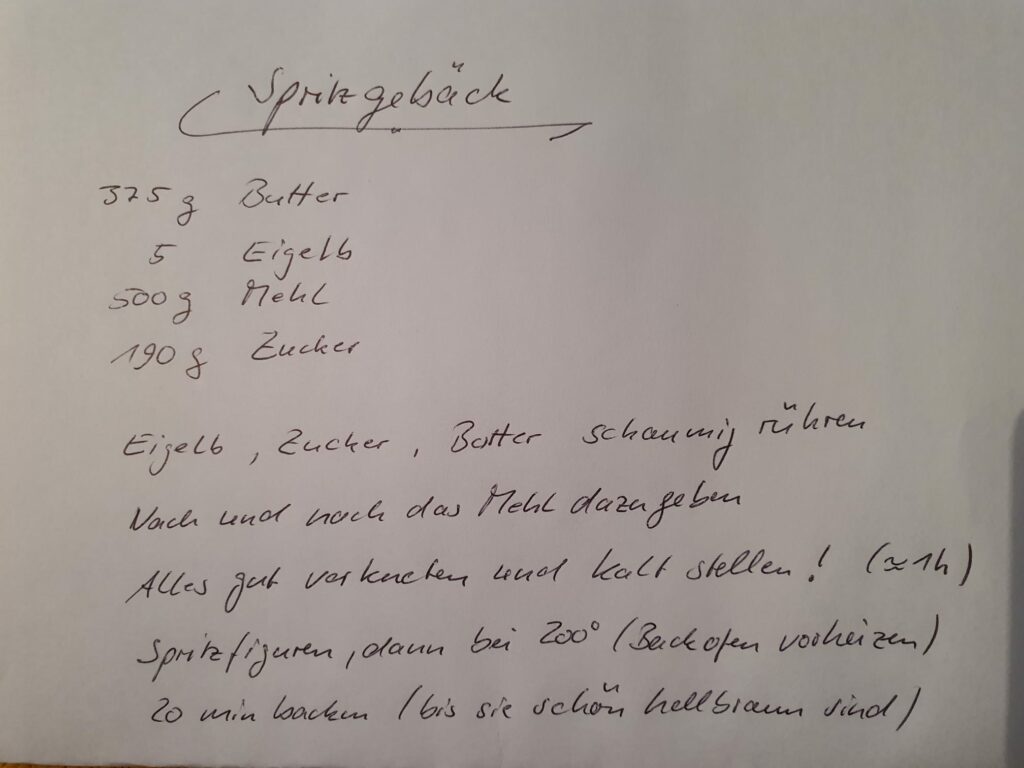 Spritzgebäck
375 g Butter
5 Eigelb
500 g Mehl
190 g Zucker
Eigelb, Zucker, Butter schaumig rühren
Nach und nach das Mehl dazugeben
Alles gut verkneten und kalt stellen! (≈1h)
Spritzfiguren, dann bei 200° (Backofen vorheizen)
20 min backen (bis sie schön hellbraun sind)